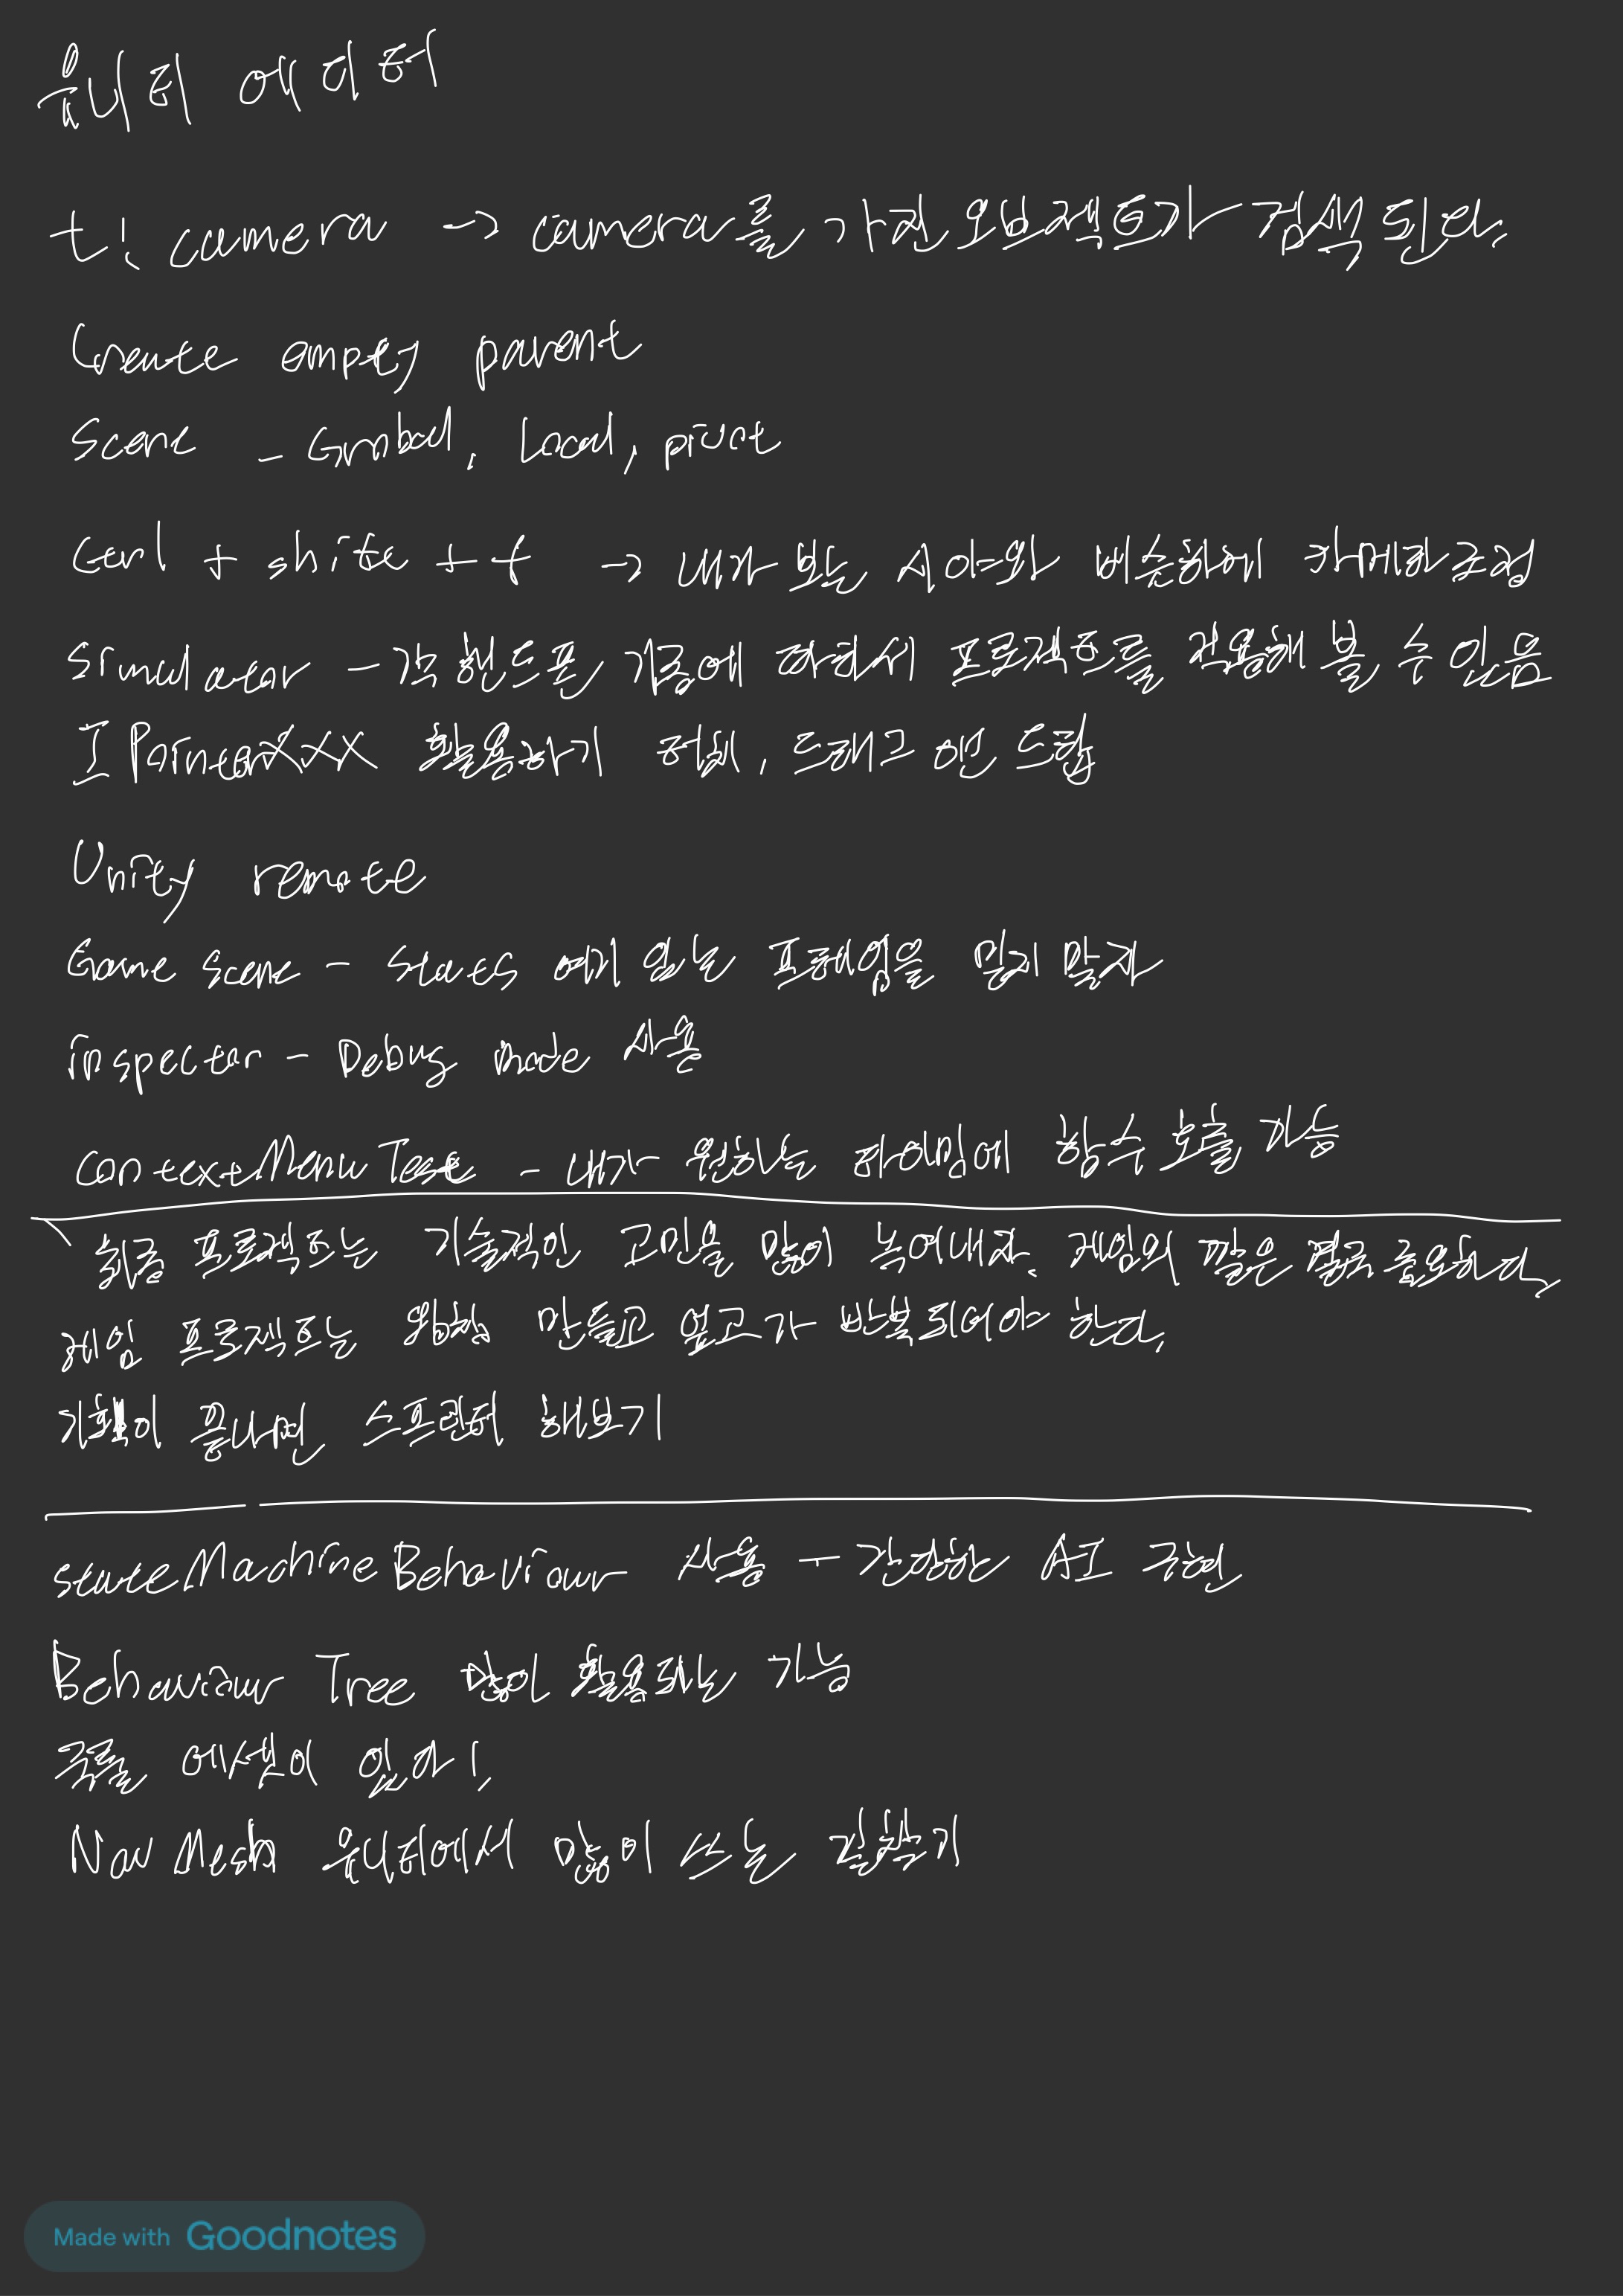 유니티 에디터
t: camera → camera를 가진 오브젝트가 검색된다.
Create empty parent
Scene - Grobal, Local, pivot
Ctrl + shift + f → 내가 보는 시야와 비슷하게 카메라 조정
Simulator - 각 핸드폰 기종에 대해서 프로젝트를 적용해 볼 수 있음
IPointerXXX 활용하기 터치, 드래그 앤 드랍
Unity remote
Game Scene - Stats 에 있는 프레임을 믿지 말자
inspector - Debug mode 사용
ContextMenu Test - 내가 원하는 타이밍에 함수 호출 가능
취공 프로젝트는 기술적인 고민을 많이 녹여내자. 게임의 질은 결국 중요하다.
게임 프로젝트는 완성 만들고 엎고가 반복되어야 한다.
기획이 끝나면 스프린트 해보기
stateMachineBehaviour 사용 - 간단한 AI 구현
Behaviour Tree 많이 활용되는 기능
에셋이 있다!
Nav Mesh 유니티에서 많이 쓰는 길찾기
Made with Goodnotes